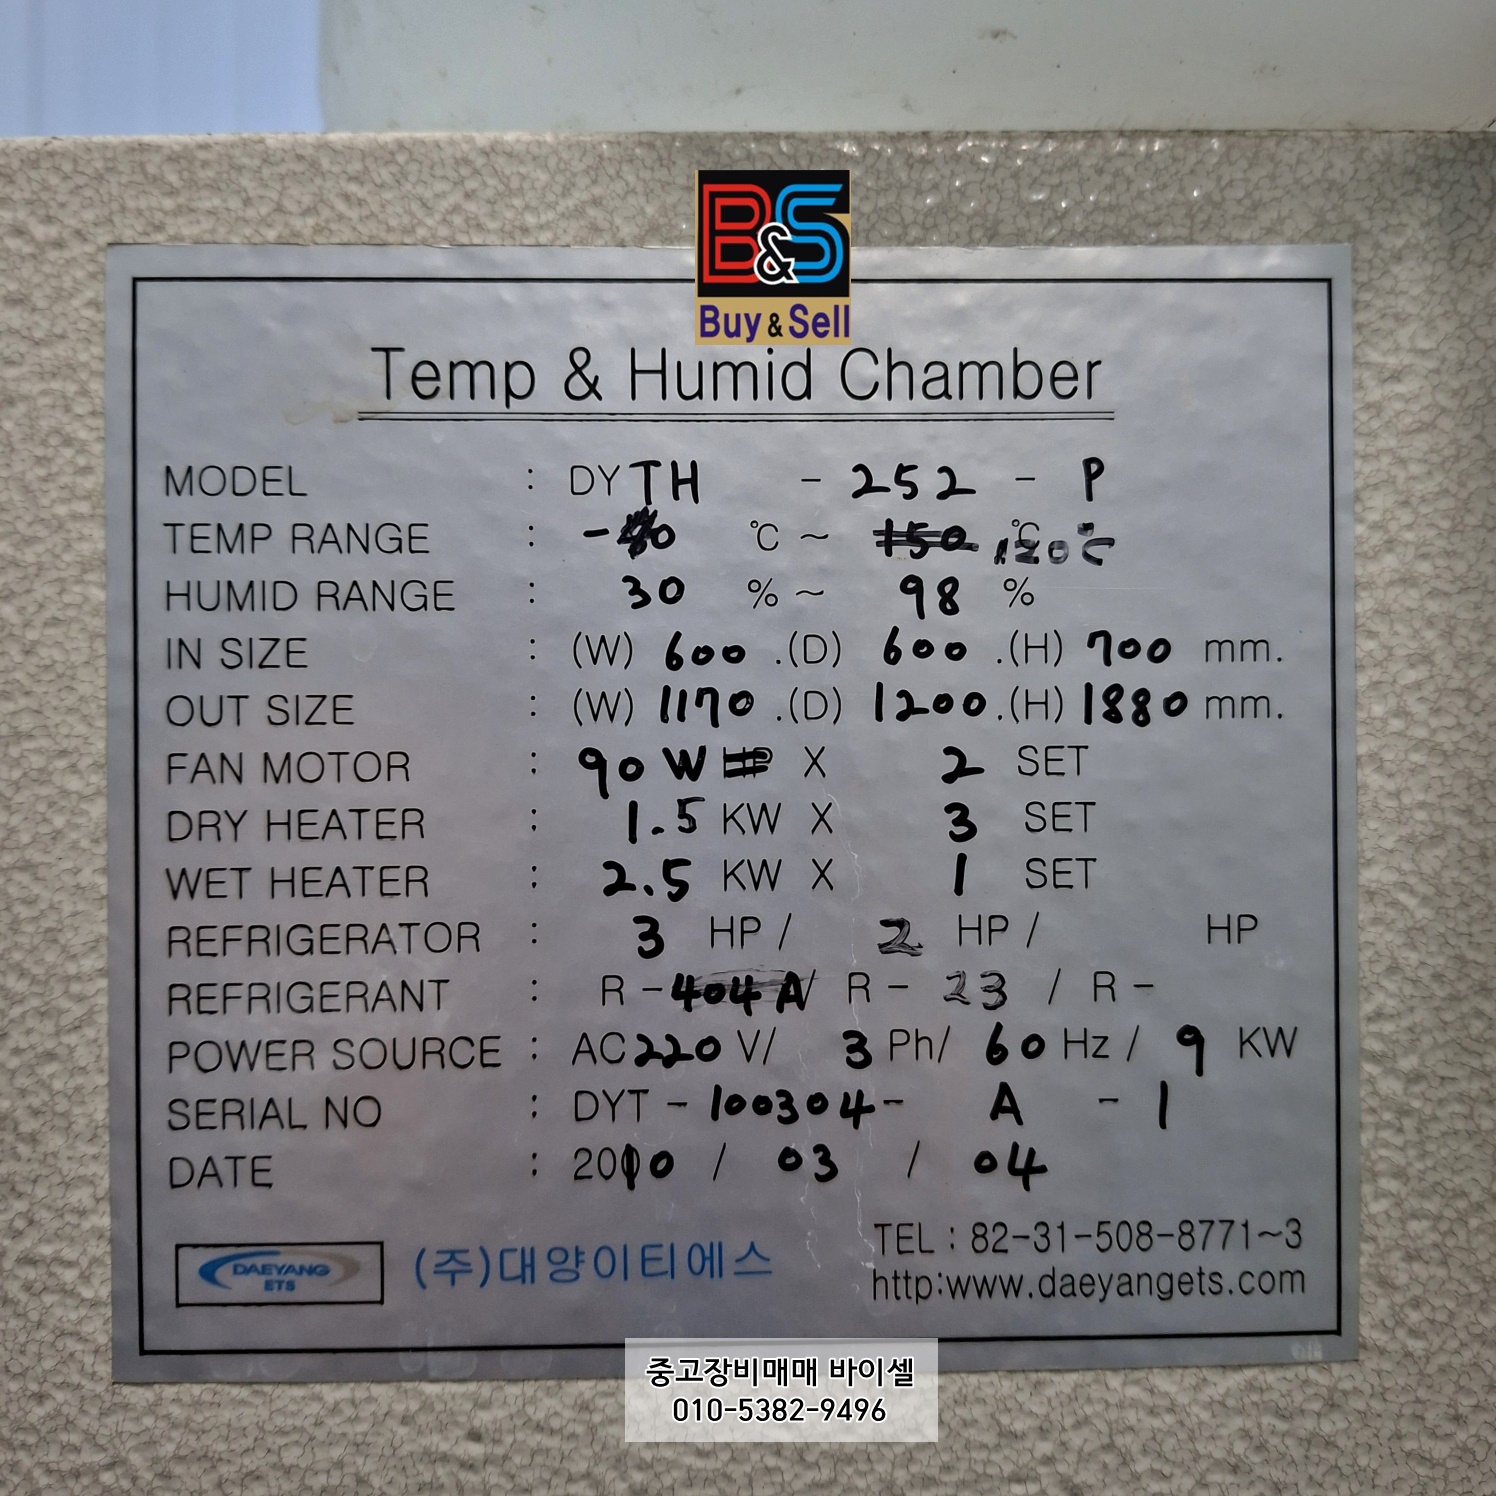 B&S
Buy & Sell
Temp & Humid Chamber
MODEL : DYTH - 252 - P
TEMP RANGE : ℃ ~ 150 ℃ 120℃
HUMID RANGE : 30 % ~ 98 %
IN SIZE : (W) 600 .(D) 600 .(H) 700 mm.
OUT SIZE : (W) 1170 .(D) 1200 .(H) 1880 mm.
FAN MOTOR : 90 W HP X 2 SET
DRY HEATER : 1.5 KW X 3 SET
WET HEATER : 2.5 KW X 1 SET
REFRIGERATOR : 3 HP / 2 HP / HP
REFRIGERANT : R - 404A / R - 23 / R -
POWER SOURCE : AC 220 V/ 3 Ph/ 60 Hz / 9 KW
SERIAL NO : DYT - 100304 - A - 1
DATE : 2010 / 03 / 04
DAEYANG
ETS
(주)대양이티에스
TEL : 82-31-508-8771~3
http:www.daeyangets.com
중고장비매매 바이셀
010-5382-9496